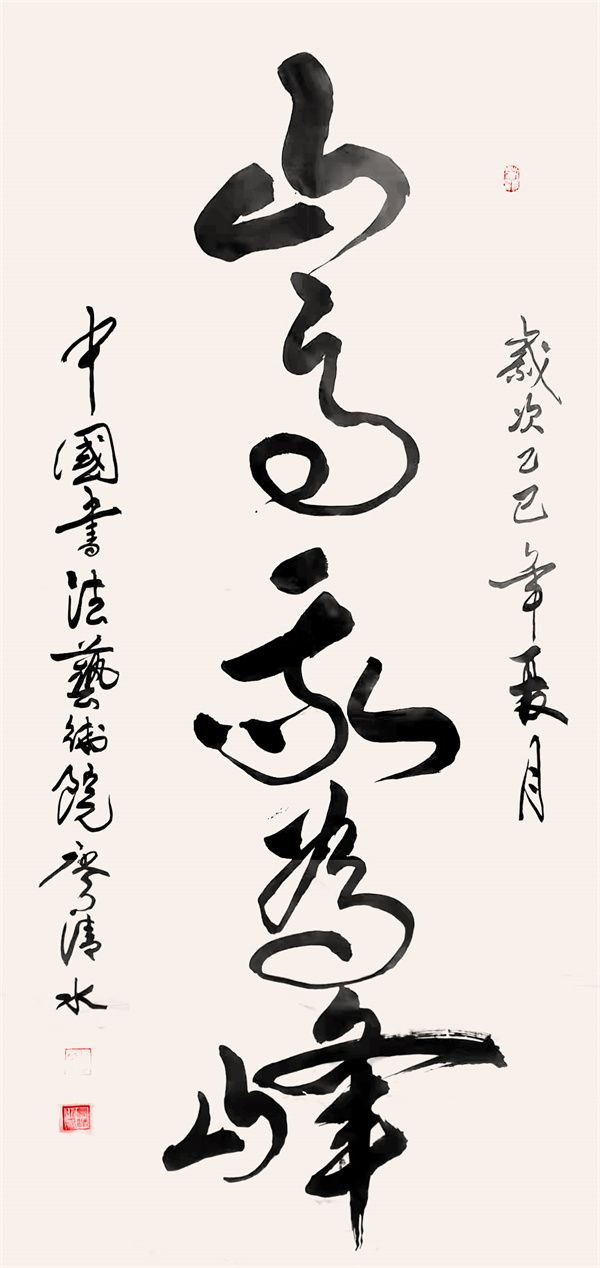 歲次乙巳年夏月
山高我為峰
中國書法藝術院廖清水